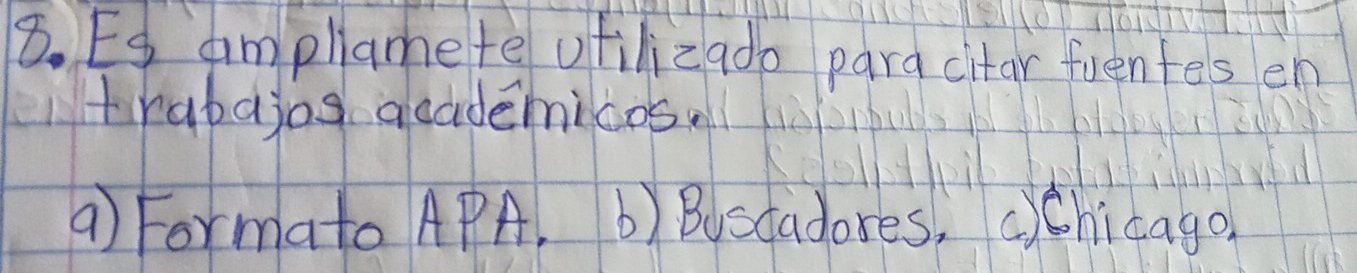 8. Es ampliamete utilizado para citar fuentes en
trabajos académicos.
a) Formato APA. b) Buscadores. c) Chicago.